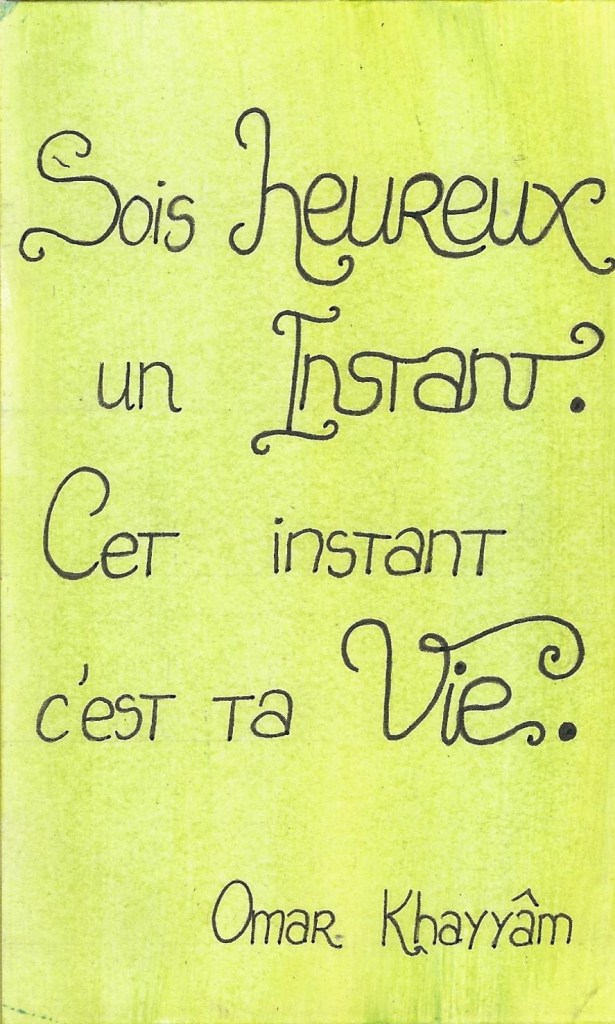 Sois heureux
un Instant.
Cet instant
c'est ta Vie.
Omar Khayyâm